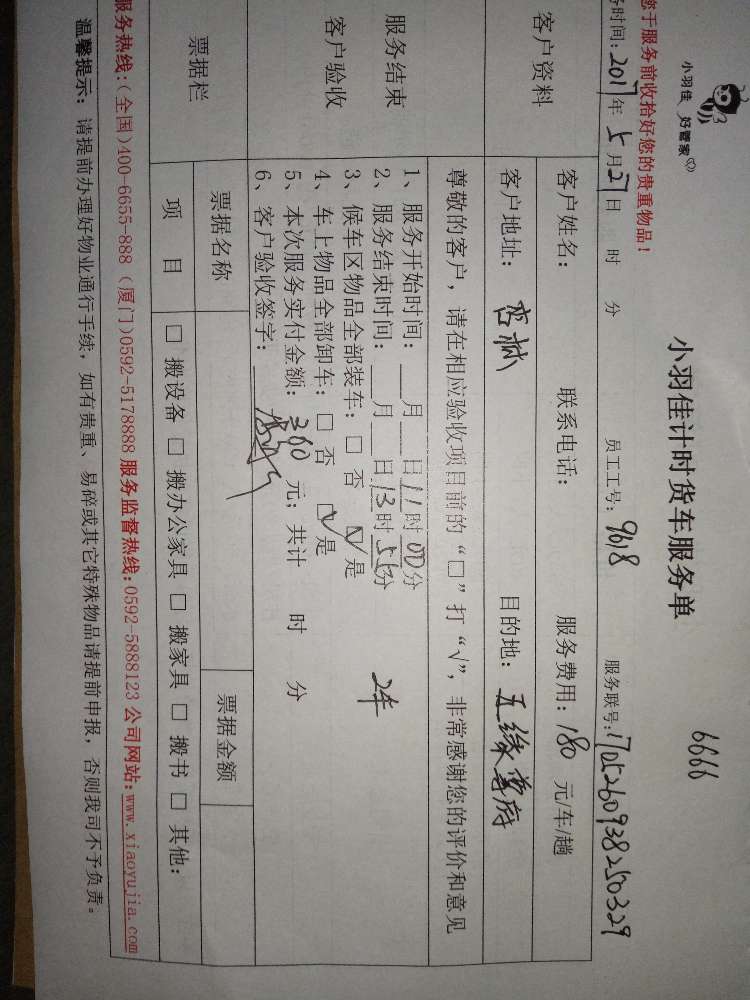 小羽佳 好管家
6666
小羽佳计时货车服务单
您于服务前收拾好您的贵重物品!
务时间: 2017年 5月27日 时 分 员工工号: 9618 服务联号: 1705260938250329
客户资料
客户姓名: 联系电话: 服务费用: 180 元/车/趟
客户地址: 杏林 目的地: 五缘
服务结束
客户验收
尊敬的客户,请在相应验收项目前的“□”打“√”,非常感谢您的评价和意见
1、服务开始时间: 月 日11时00分
2、服务结束时间: 月 日13时55分 2车
3、候车区物品全部装车: □ 否 ☑ 是
4、车上物品全部卸车: □ 否 ☑ 是
5、本次服务实付金额: 360 元; 共计 时 分
6、客户验收签字:
票据栏
票据名称 票据金额
项 目 □ 搬设备 □ 搬办公家具 □ 搬家具 □ 搬书 □ 其他:
服务热线:(全国)400-6655-888 (厦门)0592-5178888 服务监督热线:0592-5888123 公司网站:www.xiaoyujia.com
温馨提示: 请提前办理好物业通行手续, 如有贵重、易碎或其它特殊物品请提前申报, 否则我司不予负责。